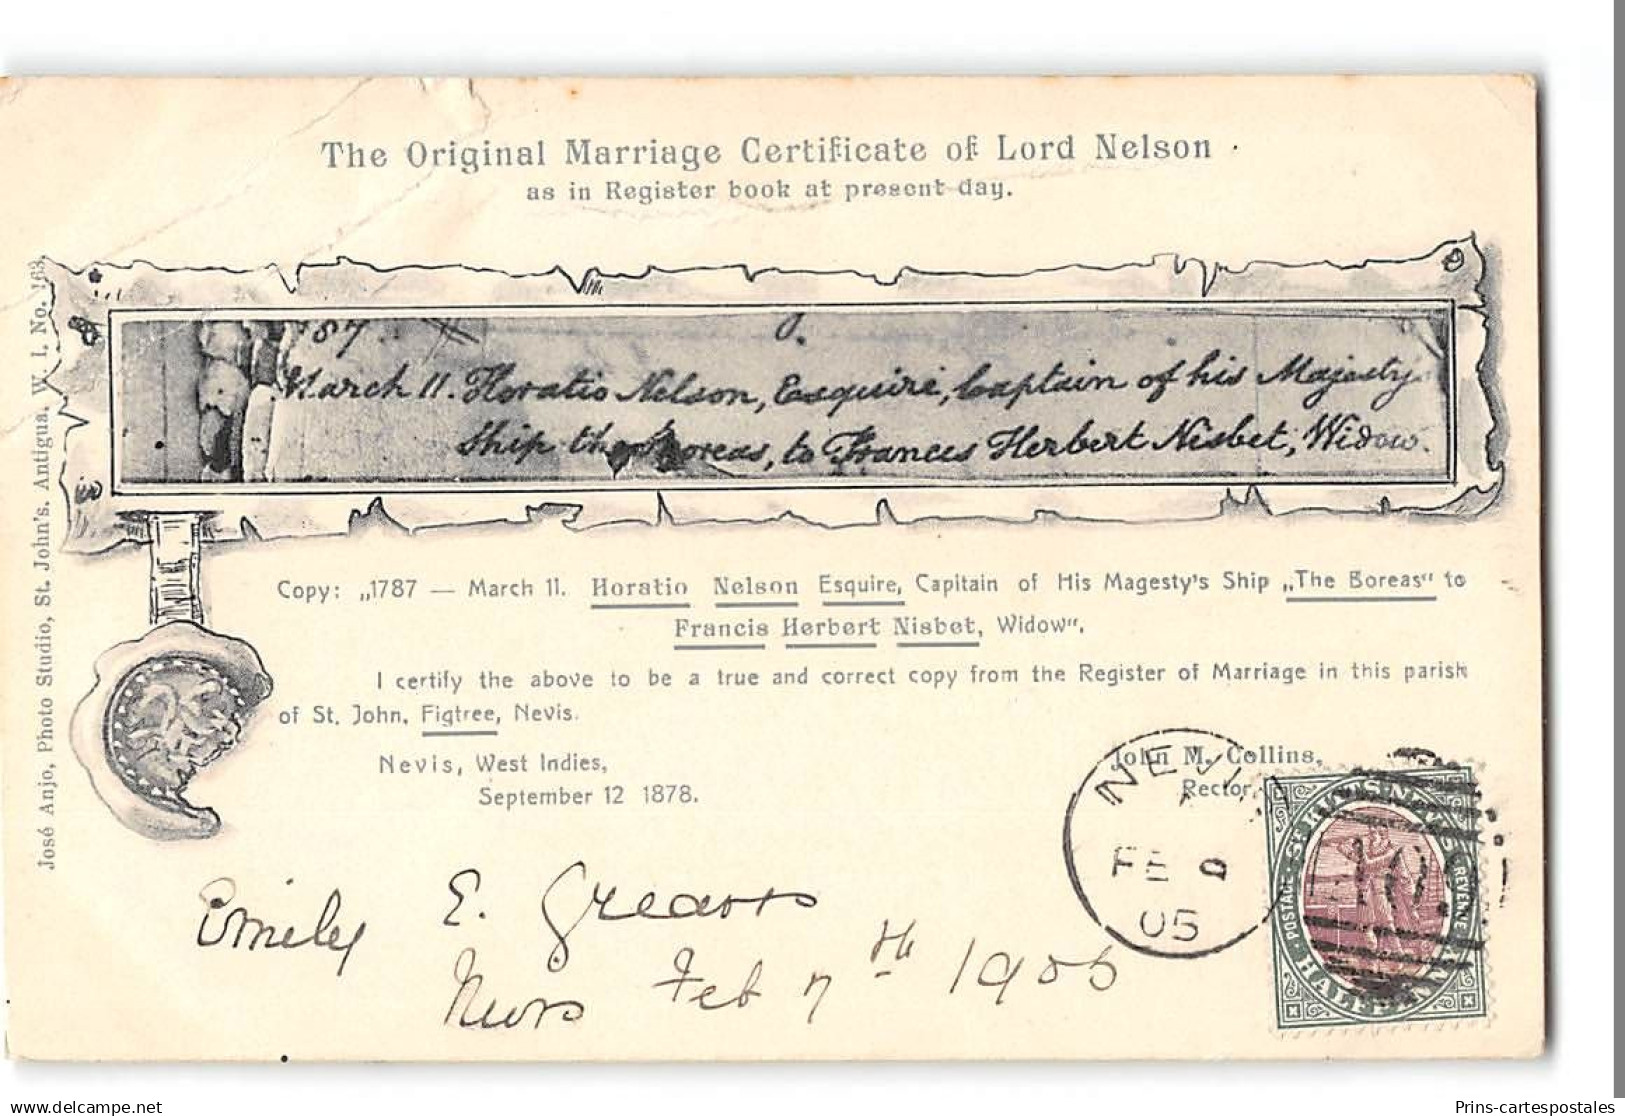 The Original Marriage Certificate of Lord Nelson
as in Register book at present day.
José Anjo, Photo Studio, St. John's. Antigua. W. I. No. 163.
87
March 11. Horatio Nelson, Esquire, Captain of his Majesty
Ship the Boreas, to Frances Herbert Nisbet, Widow.
Copy: „1787 — March 11. Horatio Nelson Esquire, Capitain of His Magesty's Ship „The Boreas" to
Francis Herbert Nisbet, Widow".
I certify the above to be a true and correct copy from the Register of Marriage in this parish
of St. John, Figtree, Nevis.
Nevis, West Indies,
September 12 1878.
John M. Collins,
Rector.
NEVI
FE 9
05
ST KITTS-NEVIS
POSTAGE
REVENUE
HALFPENNY
A09
Emily E. Greaves
Nevis Feb 7th 1905
delcampe.net
Prins-cartespostales